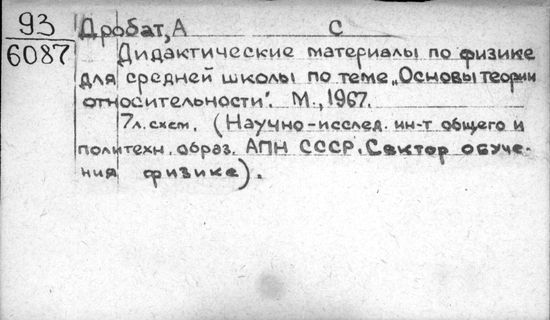 93
6087
Дробат, А С
Дидактические материалы по физике
для средней школы по теме „Основы теории
относительности". М., 1967.
7 л. схем. (Научно-исслед. ин-т общего и
политехн. образ. АПН СССР. Сектор обуче-
ния физике).